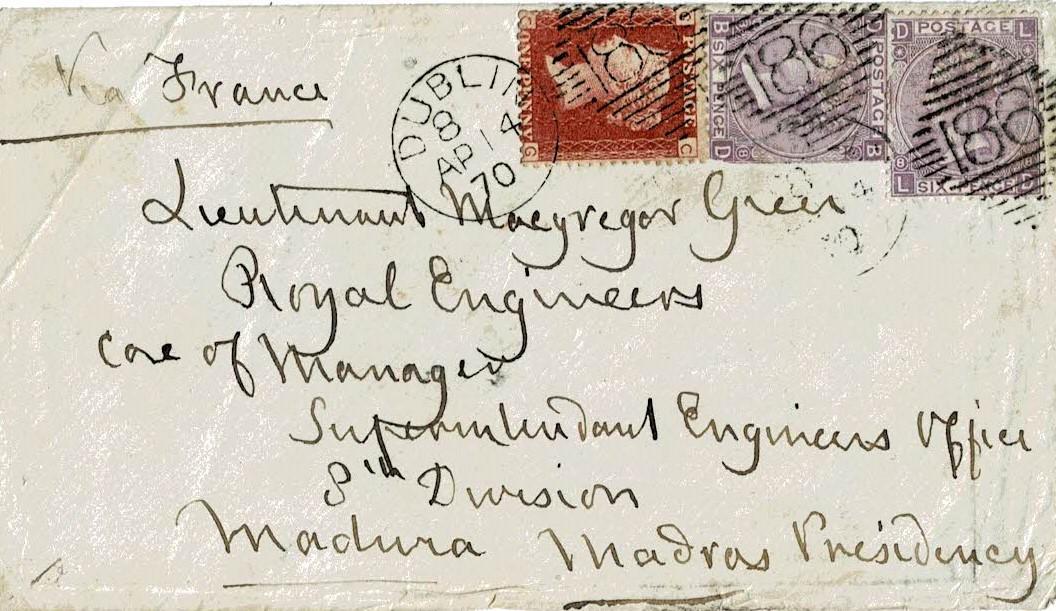 Via France
DUBLIN
8
AP 14
70
G POSTAGE C
ONE PENNY G
186
B SIX PENCE D
D POSTAGE B
186
D POSTAGE L
L SIX PENCE D
186
Lieutenant Macgregor Greer
Royal Engineers
Care of Manager
Superintendant Engineers Office
8th Division
Madura Madras Presidency